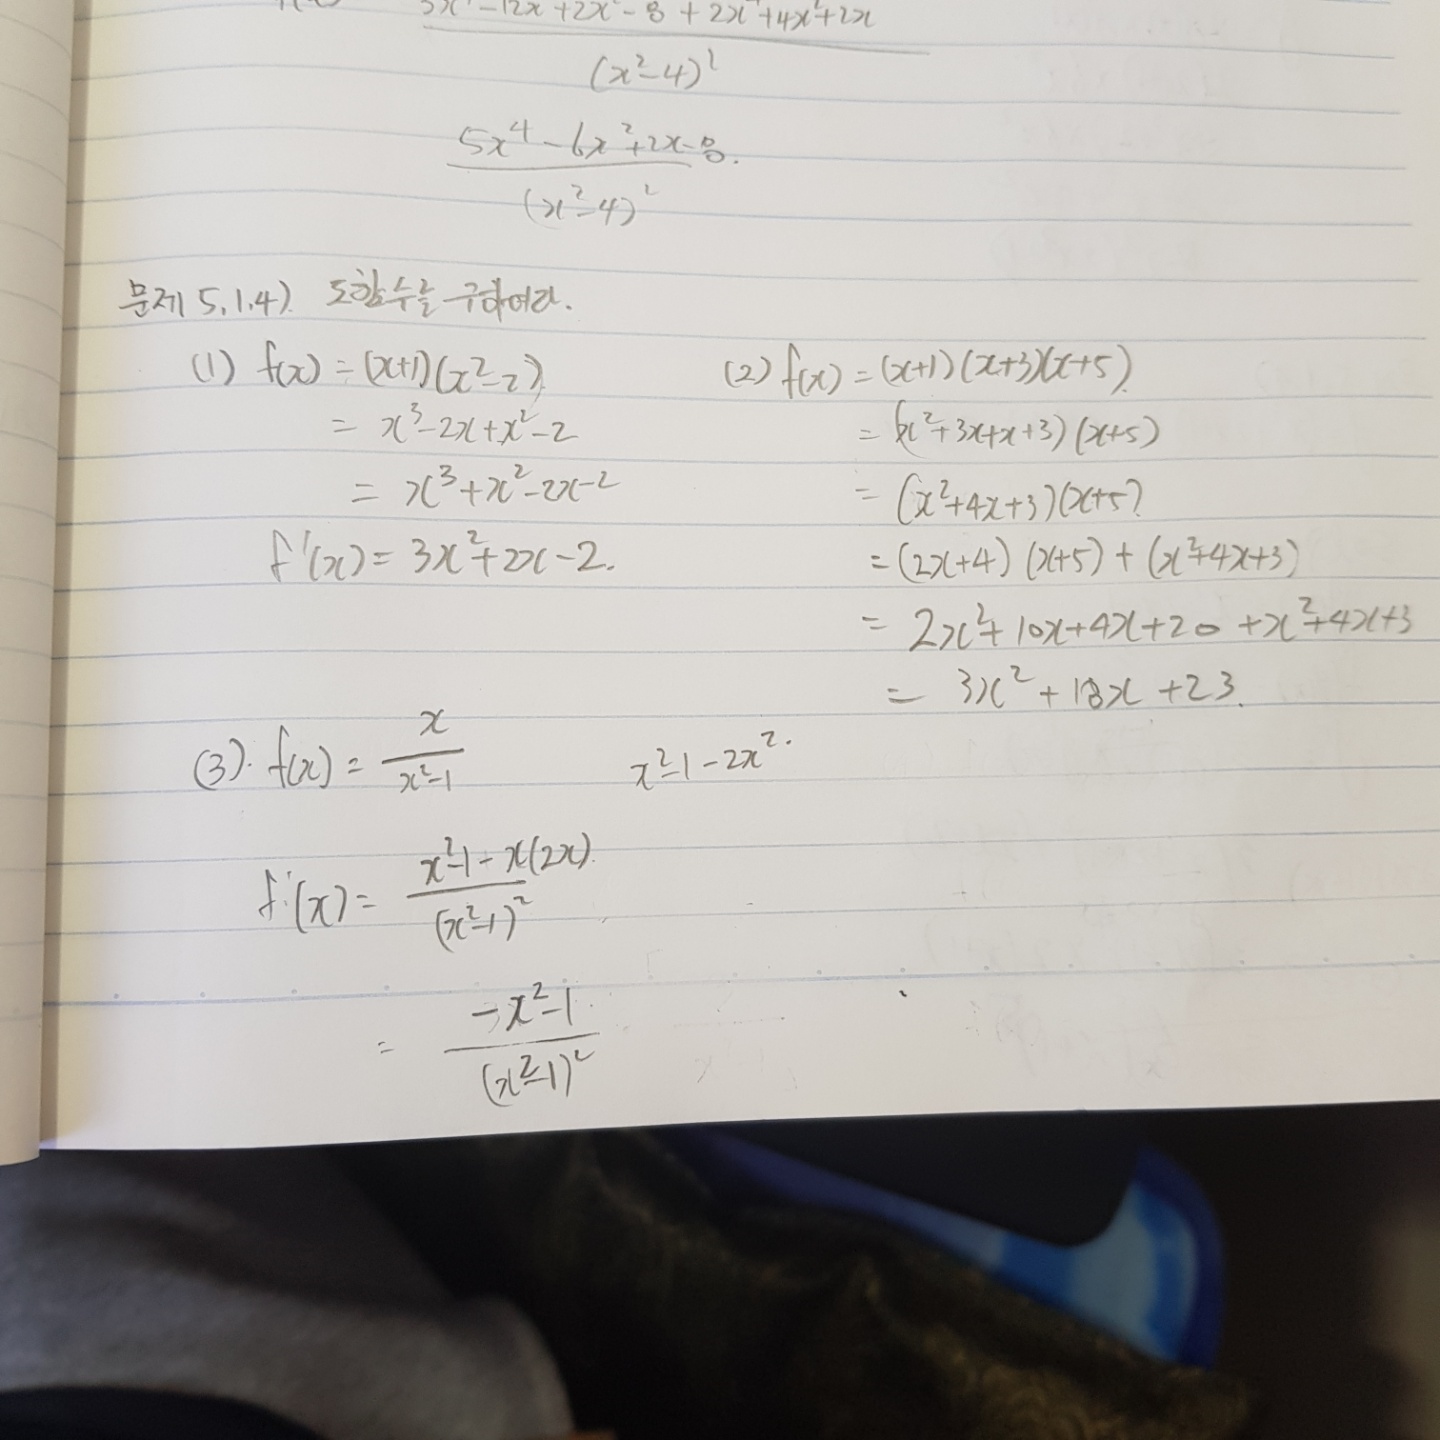 - 12x + 2x² - 8 + 2x⁴ + 4x² + 2x
(x²-4)²
5x⁴ - 6x² + 2x - 8.
(x²-4)²
문제 5.1.4) 도함수를 구하여라.
(1) f(x) = (x+1)(x²-2)
= x³-2x+x²-2
= x³+x²-2x-2
f'(x) = 3x²+2x-2.
(2) f(x) = (x+1)(x+3)(x+5)
= (x²+3x+x+3)(x+5)
= (x²+4x+3)(x+5)
= (2x+4)(x+5) + (x²+4x+3)
= 2x²+10x+4x+20+x²+4x+3
= 3x²+18x+23.
(3). f(x) = x / x²-1
x²-1-2x².
f'(x) = x²-1-x(2x) / (x²-1)²
= -x²-1 / (x²-1)²